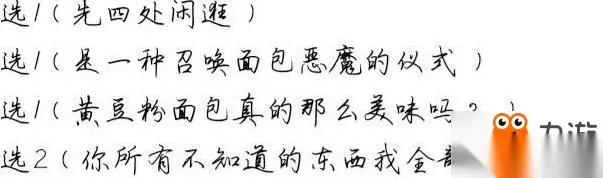 选1(先四处闲逛)
选1(是一种召唤面包恶魔的仪式)
选1(黄豆粉面包真的那么美味吗?)
选2(你所有不知道的东西我全
九游